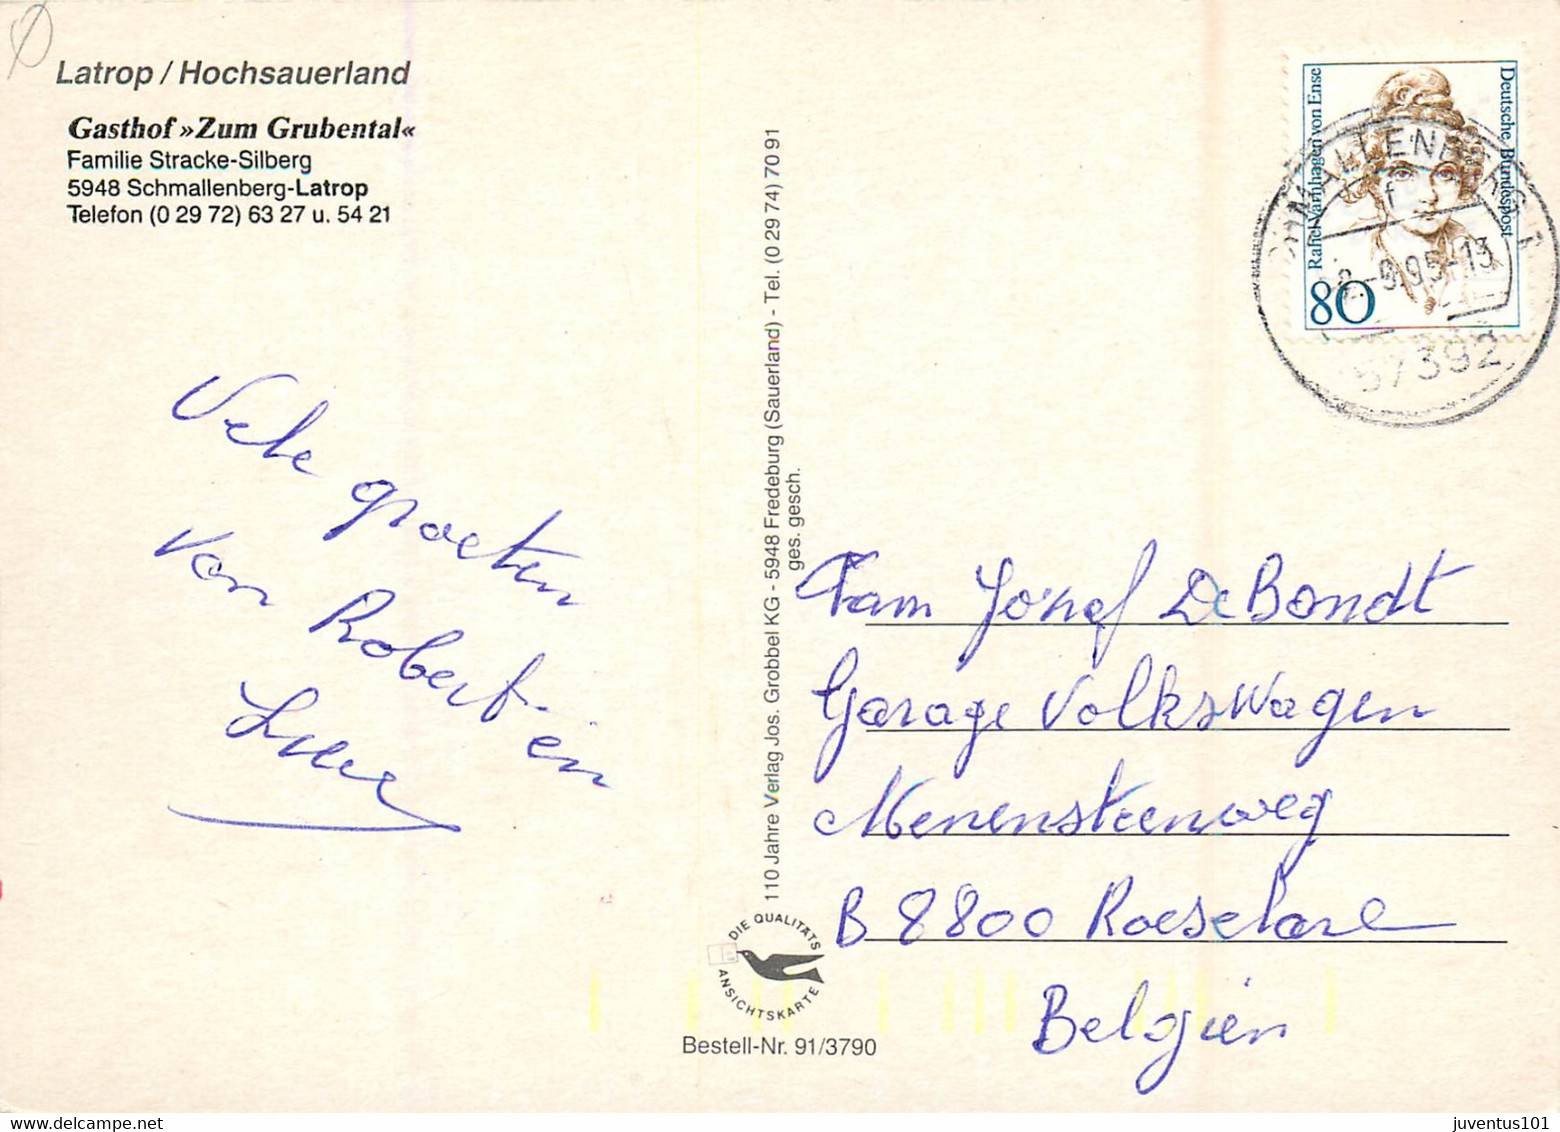 Latrop / Hochsauerland
Gasthof »Zum Grubental«
Familie Stracke-Silberg
5948 Schmallenberg-Latrop
Telefon (0 29 72) 63 27 u. 54 21
Vele groeten
van Robert en
110 Jahre Verlag Jos. Grobbel KG - 5948 Fredeburg (Sauerland) - Tel. (0 29 74) 70 91
ges. gesch.
DIE QUALITÄTS
ANSICHTSKARTE
Bestell-Nr. 91/3790
Rahel Varnhagen von Ense
Deutsche Bundespost
80
SCHMALLENBERG 1
f
-9.95-13
57392
Fam Jozef De Bondt
Garage Volkswagen
Menensteenweg
B 8800 Roeselare
Belgien
juventus101